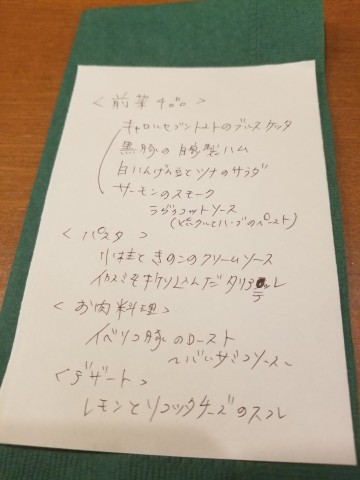 ＜前菜4品＞
キャロットとセブントマトのブルスケッタ
黒豚の自家製ハム
白いんげん豆とツナのサラダ
サーモンのスモーク
ラヴィゴットソース
(ピクルスとハーブのペースト)
＜パスタ＞
小柱ときのこのクリームソース
イカスミを練り込んだタリオリーレ
テ
＜お肉料理＞
イベリコ豚のロースト
～バルサミコソース～
＜デザート＞
レモンとリコッタチーズのスフレ